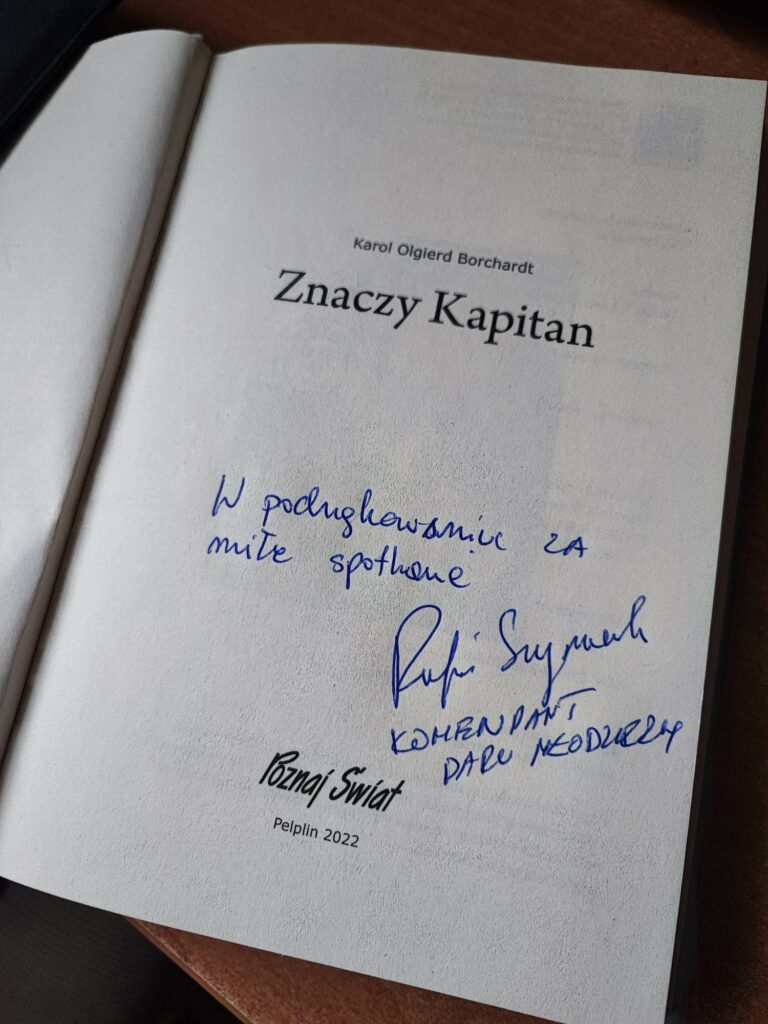 Karol Olgierd Borchardt
Znaczy Kapitan
W podziękowaniu za
miłe spotkanie
Rafał Szymański
KOMENDANT
DARU MŁODZIEŻY
Poznaj Świat
Pelplin 2022